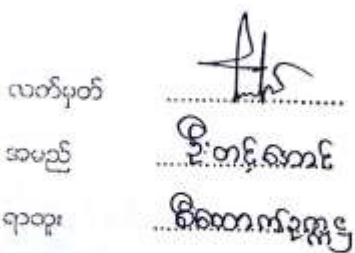 လက်မှတ်
အမည် ဦးတင့်အောင်
ရာထူး ဒီထောက်ဥက္ကဋ္ဌ